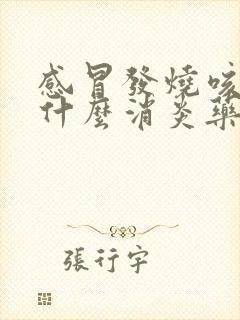 感冒發燒咳
什麼消炎藥
張行宇